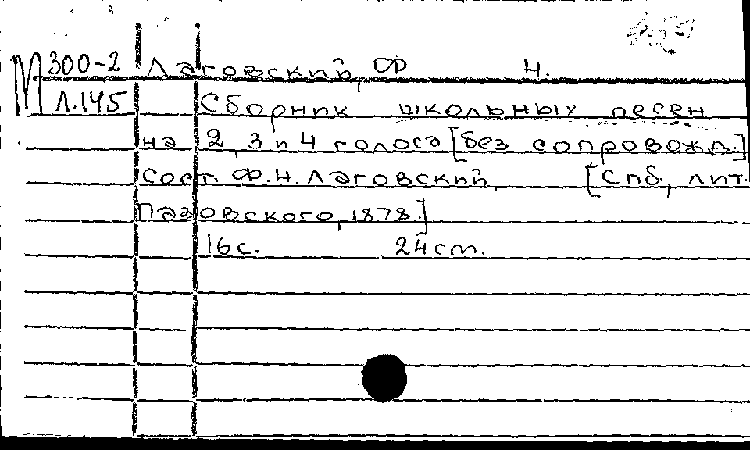 М 300-2 Лаговский, Ф Н.
Л.145 Сборник школьных песен
на 2, 3 и 4 голоса [без сопровожд.]
сост. Ф.Н. Лаговский, [Спб, лит.
Пазовского, 1878.]
16с. 24 cm.